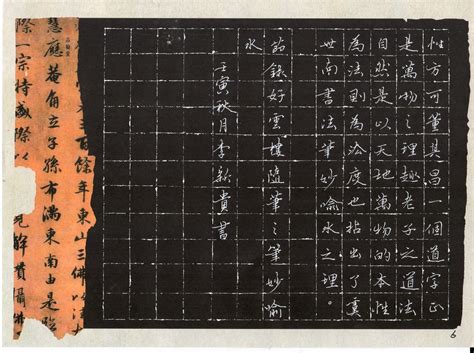 方可董其昌一個道字正
是萬物之理趣老子之道法
自然是以天地萬物的本性
為法則為法度也拈出了虞
世南書法筆妙喻水之理。
節錄好雲樓隨筆之筆妙喻
水
壬寅秋月李新貴書
百餘年東山三佛以法
慧應菴角立子孫布滿東南由是臨
際一宗特盛際以見解貫攝佛
6